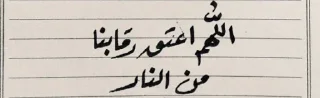 اللهم اعتق رقابنا
من النار